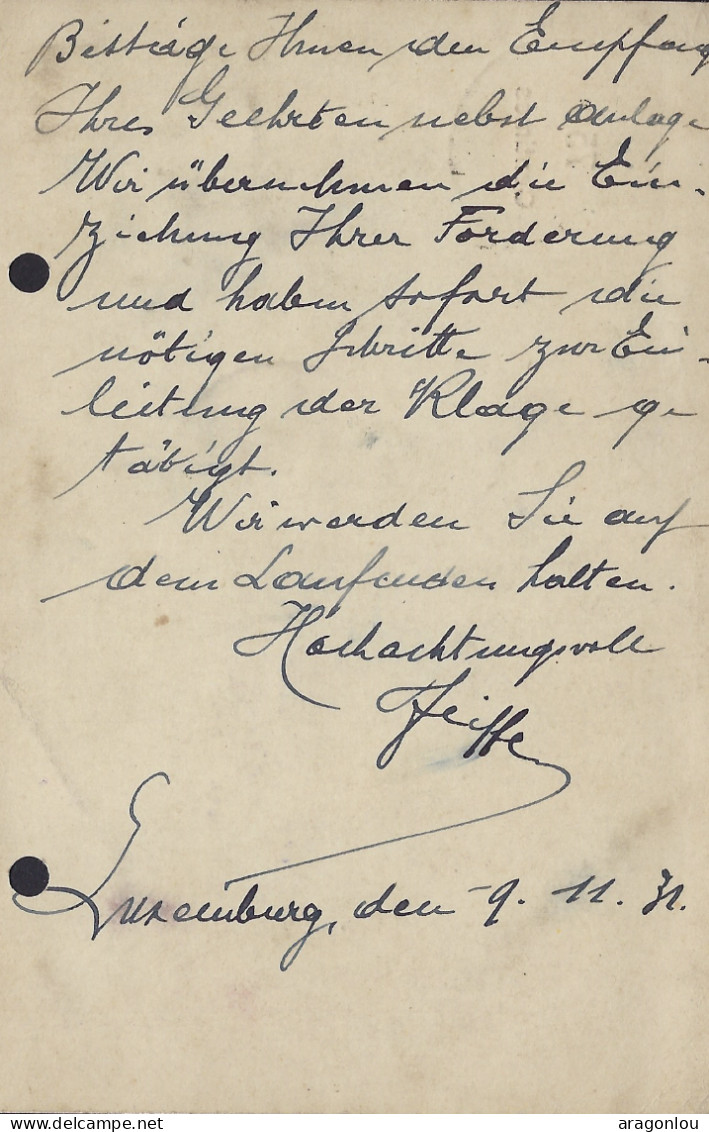 Bestätige Ihnen den Empfang
Ihres Geehrten nebst Anlage
Wir übernehmen die Ein-
ziehung Ihrer Forderung
und haben sofort die
nötigen Schritte zur Ein-
leitung der Klage ge
tätigt.
Wir werden Sie auf
dem Laufenden halten.
Hochachtungsvoll
Luxemburg, den 9. 11. 31.
aragonlou